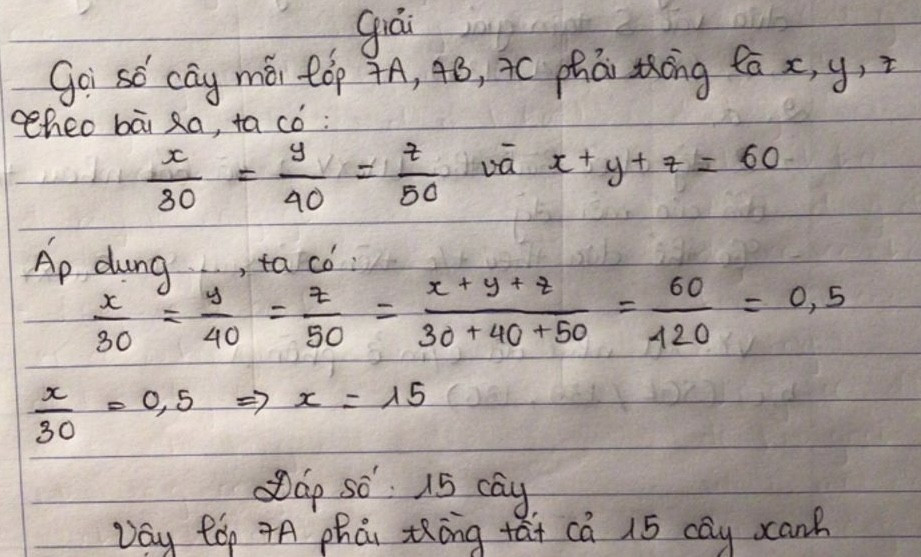 Giải
Gọi số cây mỗi lớp 7A, 7B, 7C phải trồng là x, y, z
Theo bài ra, ta có:
x/30 = y/40 = z/50 và x + y + z = 60
Áp dụng ..., ta có:
x/30 = y/40 = z/50 = (x + y + z)/(30 + 40 + 50) = 60/120 = 0,5
x/30 = 0,5 => x = 15
Đáp số: 15 cây
Vậy lớp 7A phải trồng tất cả 15 cây xanh